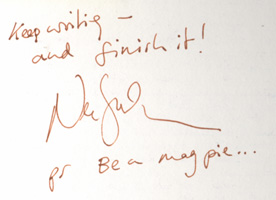 Keep writing –
and finish it!
ps Be a magpie...